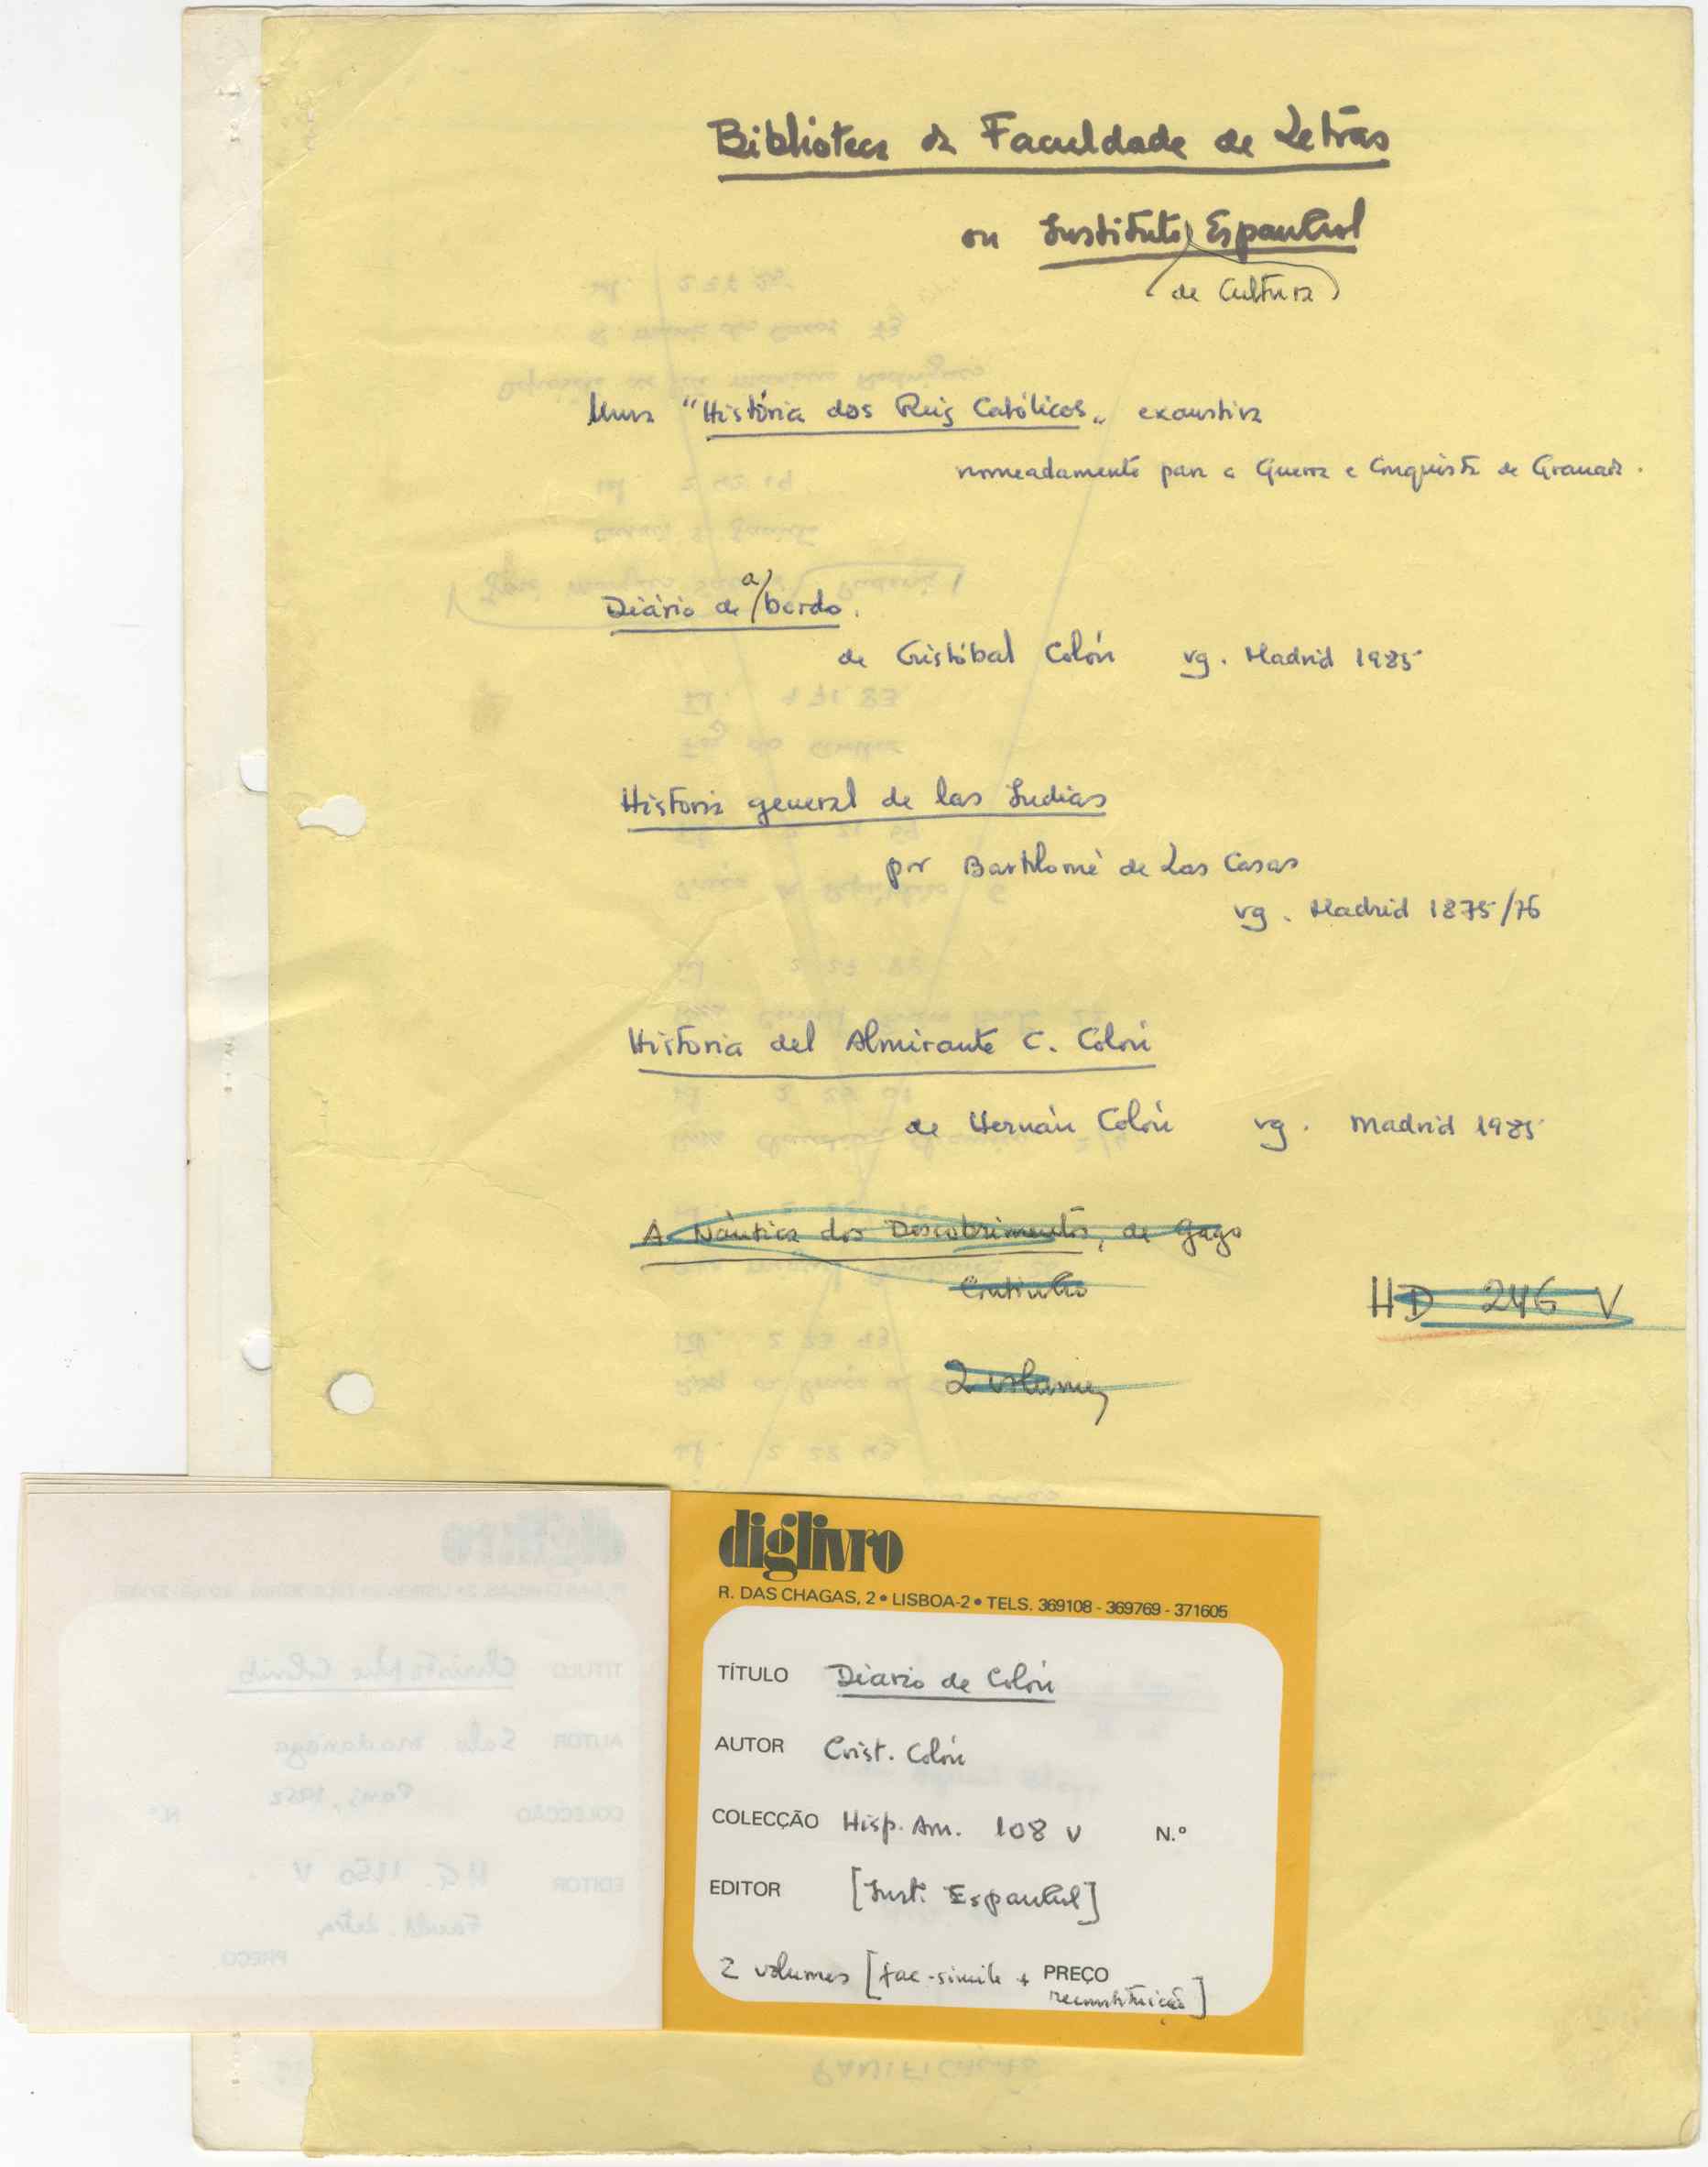 Biblioteca da Faculdade de Letras
ou Instituto Espanhol
(de Cultura)
Uma "História dos Reis Católicos" exaustiva
nomeadamente para a Guerra e Conquista de Granada.
Diário de a/bordo.
de Cristóbal Colón vg. Madrid 1985
Historia general de las Indias
por Bartolomé de Las Casas
vg. Madrid 1875/76
Historia del Almirante C. Colón
de Hernán Colón vg. Madrid 1985
A Náutica dos Descobrimentos, de Gago
Coutinho
HD 246 V
2 volumes
diglivro
R. DAS CHAGAS, 2 • LISBOA-2 • TELS. 369108 - 369769 - 371605
TÍTULO Diario de Colón
AUTOR Crist. Colón
COLECÇÃO Hisp. Am. 108 V N.º
EDITOR [Inst. Espanhol]
2 volumes [fac-simile + PREÇO
reconstituição]